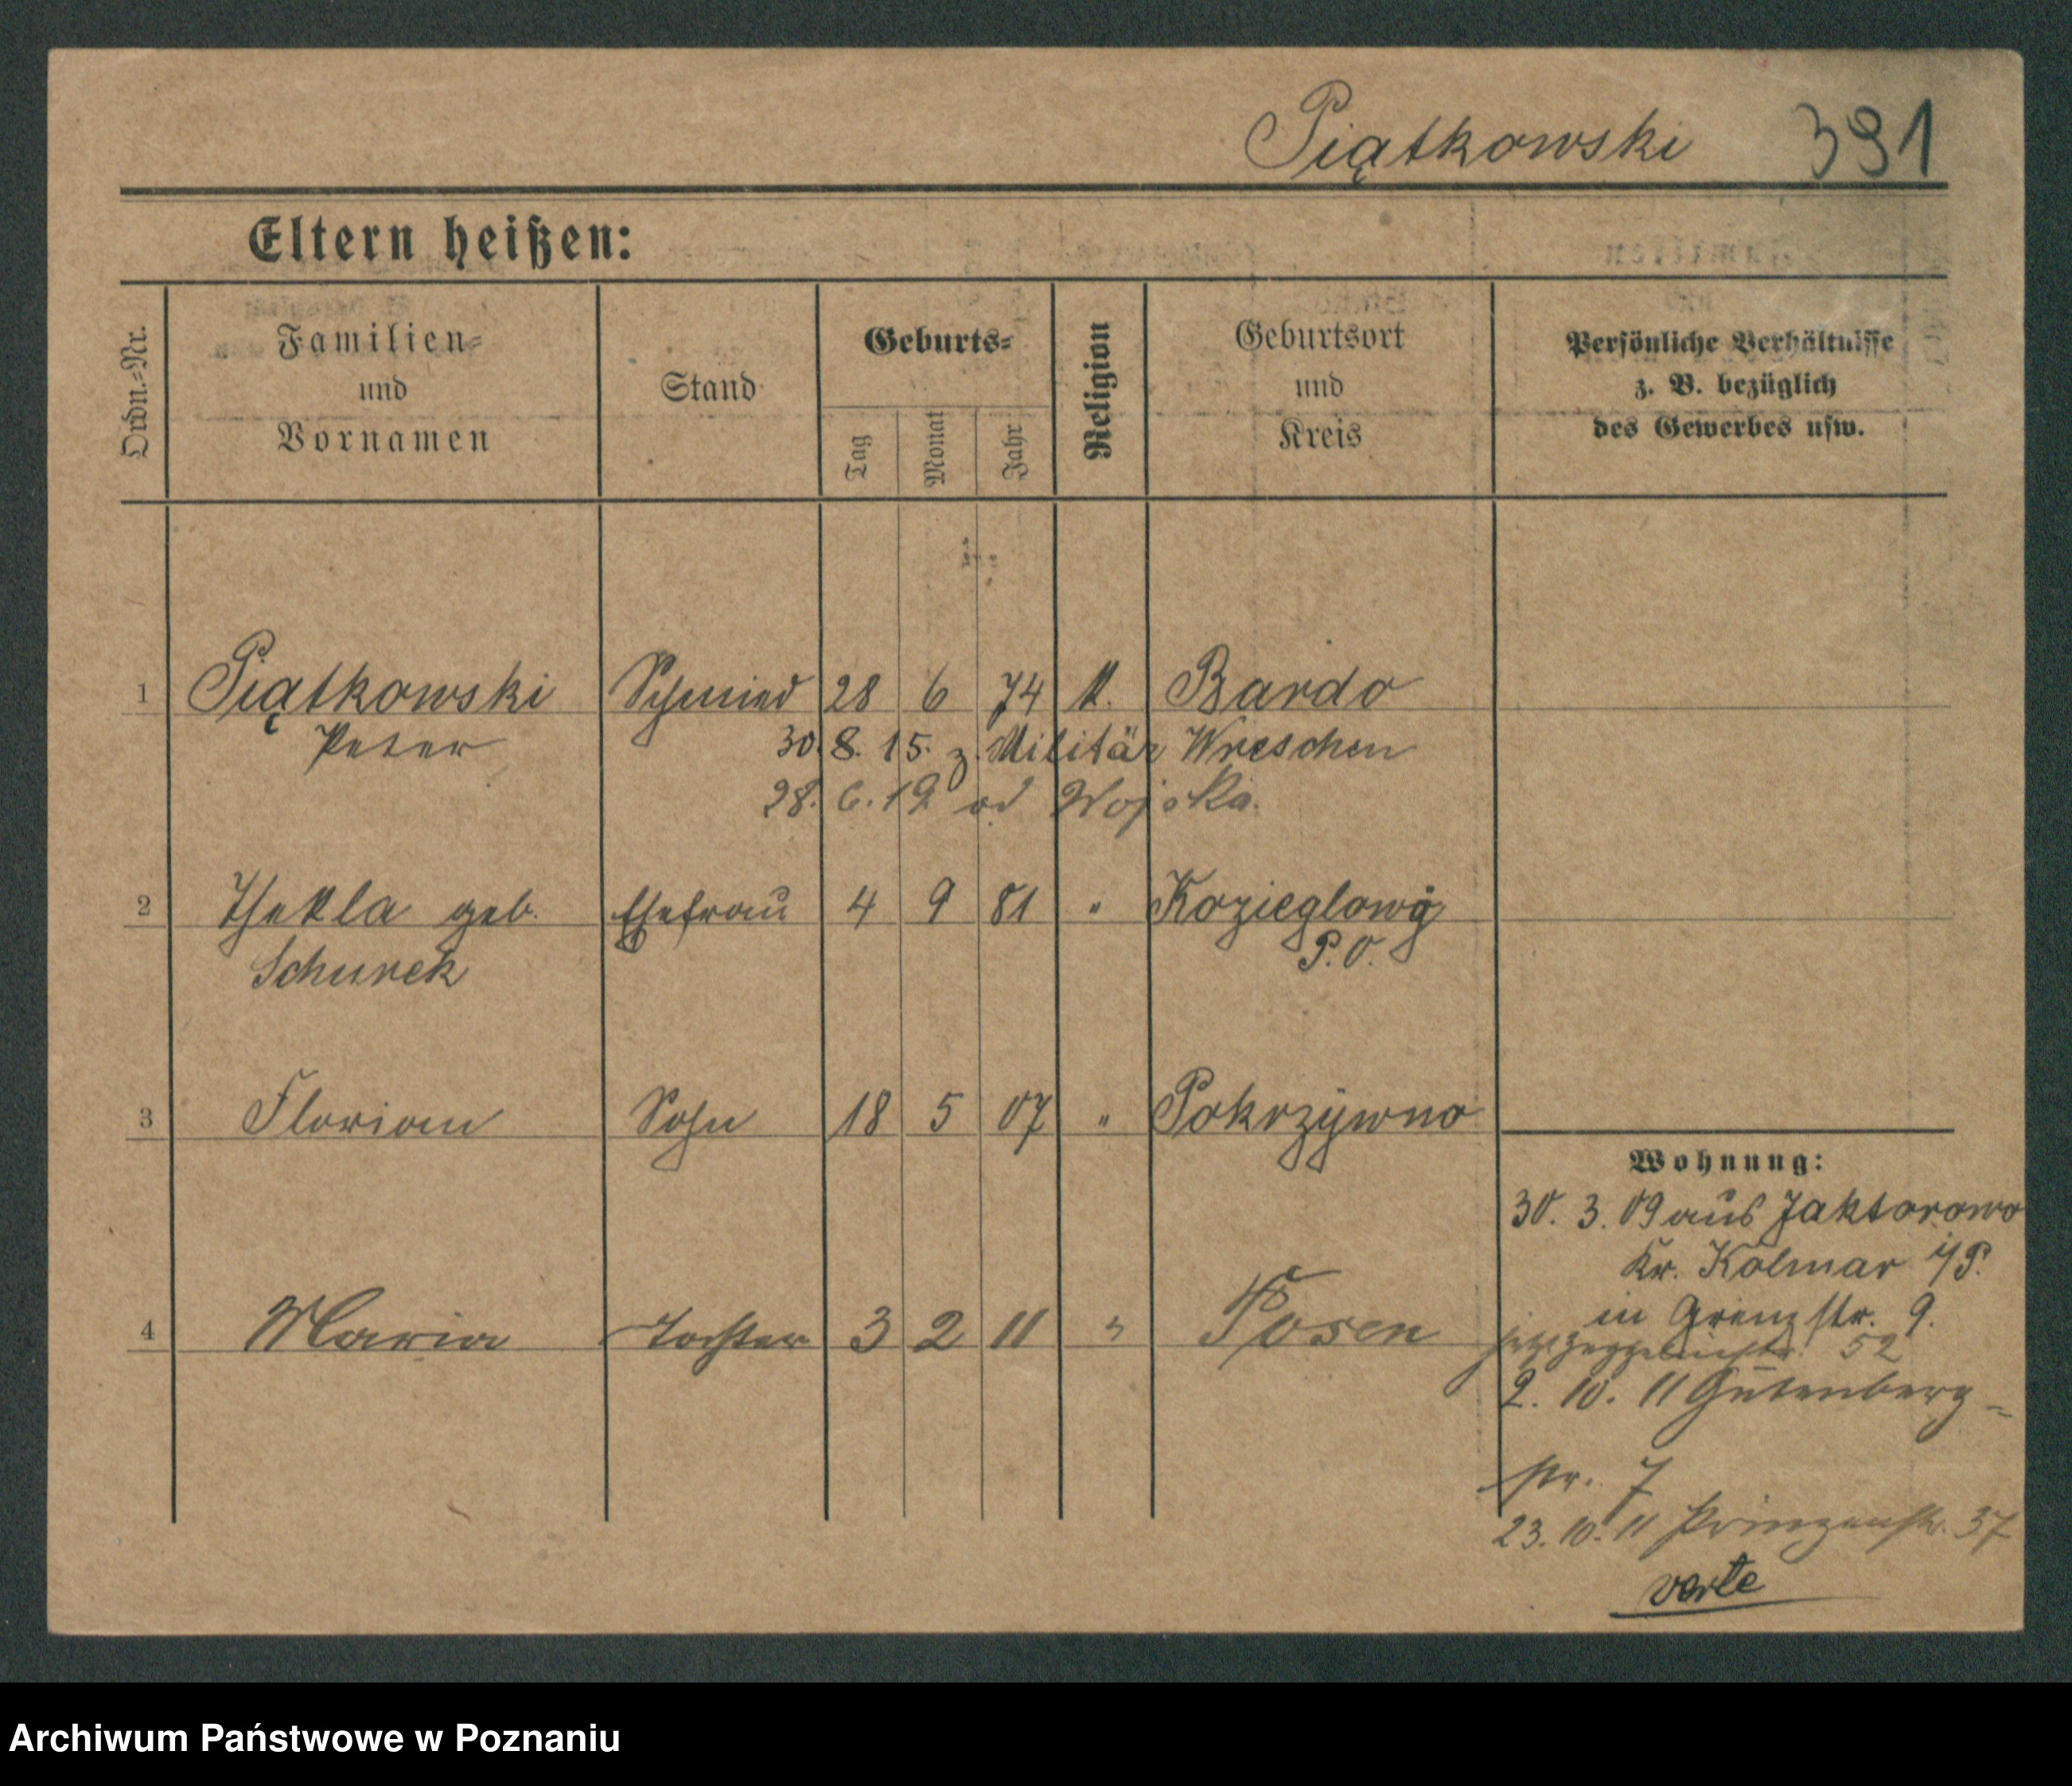 Piątkowski 391
Eltern heißen:
Ordn.-Nr.
Familien-
und
Vornamen
Stand
Geburts-
Tag
Monat
Jahr
Religion
Geburtsort
und
Kreis
Persönliche Verhältnisse
z. B. bezüglich
des Gewerbes usw.
1 Piątkowski Schmied 28 6 74 k. Bardo
Peter 30. 8. 15. z. Militär Wreschen
28. 6. 19 od Wojska.
2 Thekla geb. Ehefrau 4 9 81 " Kozieglowy
Schurek P. O.
3 Florian Sohn 18 5 07 " Pokrzywno
Wohnung:
30. 3. 09 aus Jaktorowo
Kr. Kolmar i/P.
in Grenzstr. 9.
4 Maria Tochter 3 2 11 " Posen
jetzt 52
2. 10. 11 Gutenberg-
str. 7
23. 10. 11 Prinzenstr. 37
verte
Archiwum Państwowe w Poznaniu